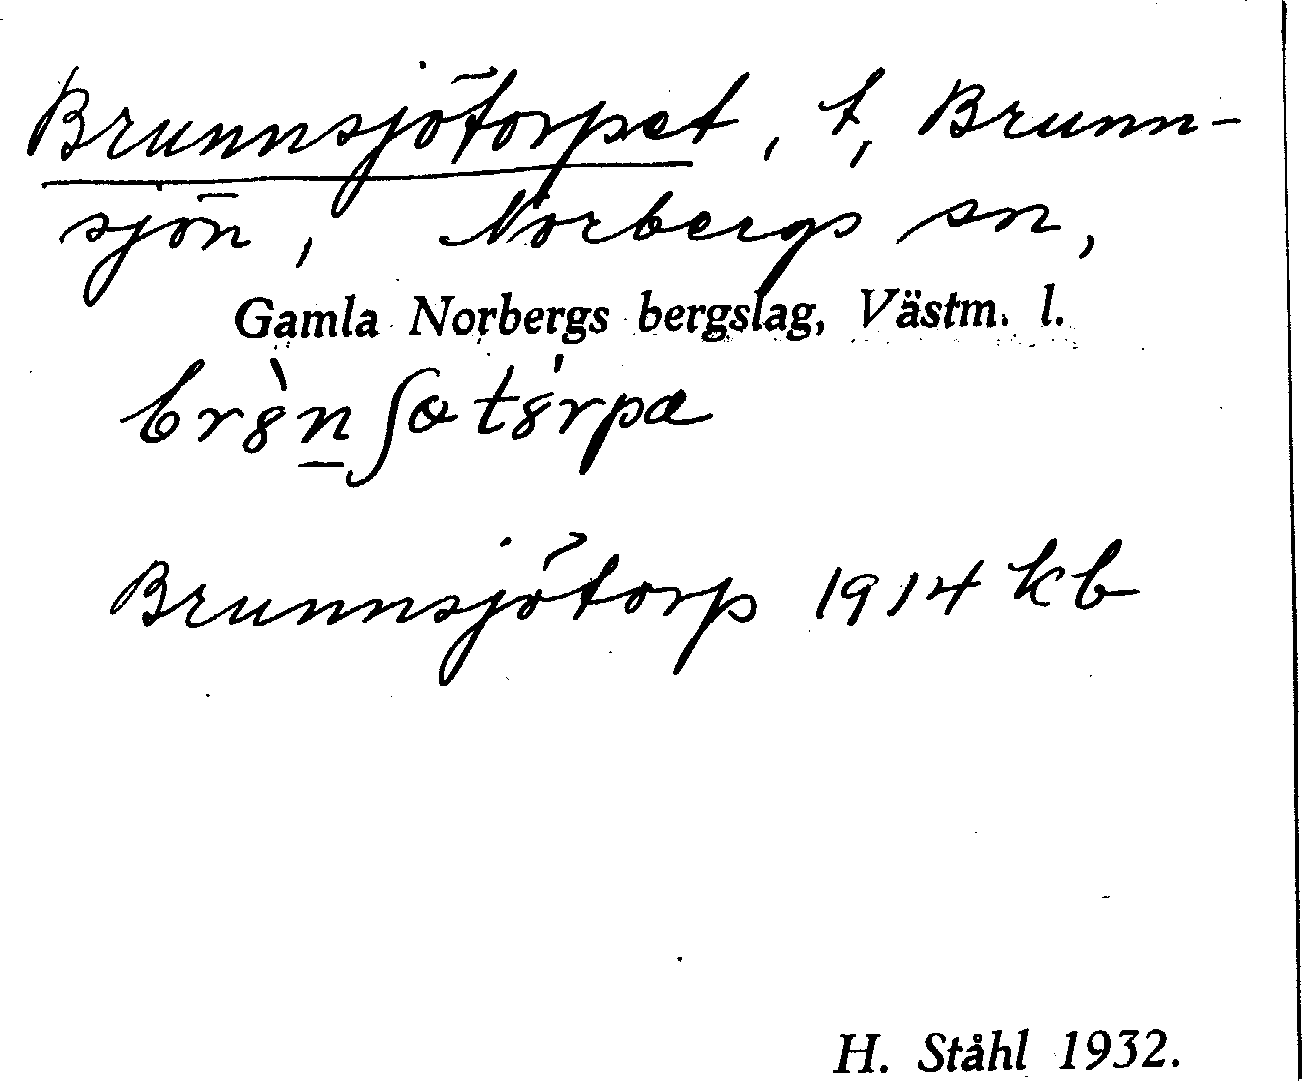 Brunnsjötorpet, t, Brunn-
sjön, Norbergs sn,
Gamla Norbergs bergslag, Västm. l.
br8̀n̲ʃøt8́rpa
Brunnsjötorp 1914 kb
H. Ståhl 1932.